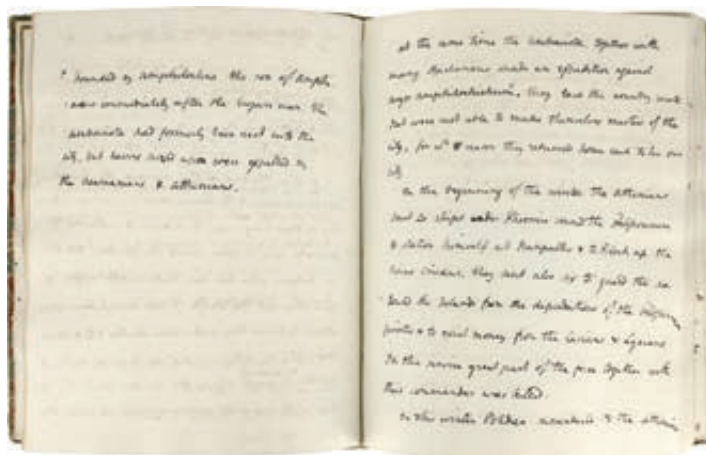 founded by Amphilochus the son of Amphi
immediately after the Trojan war. The
Ambraciots had formerly been next into the
city, but having were expelled by
the Acarnanians & Athenians.
at the same time the Ambraciots together with
many Barbarians made an expedition against
Argos Amphilochicum, they laid the country waste
but were not able to make themselves masters of the
city, for wh reason they returned home each to his own
city
In the beginning of the winter the Athenians
sent 20 ships under Phormio round the Peloponnesus
to station himself at Naupactus & to block up the
they sent also six to guard the sea
and the islands from the depredations of the Peloponn
pirates & to raise money from the Carians & Lycians
In this great part of the force together with
this commander was killed.
In this winter Potidea surrendered to the Athenians